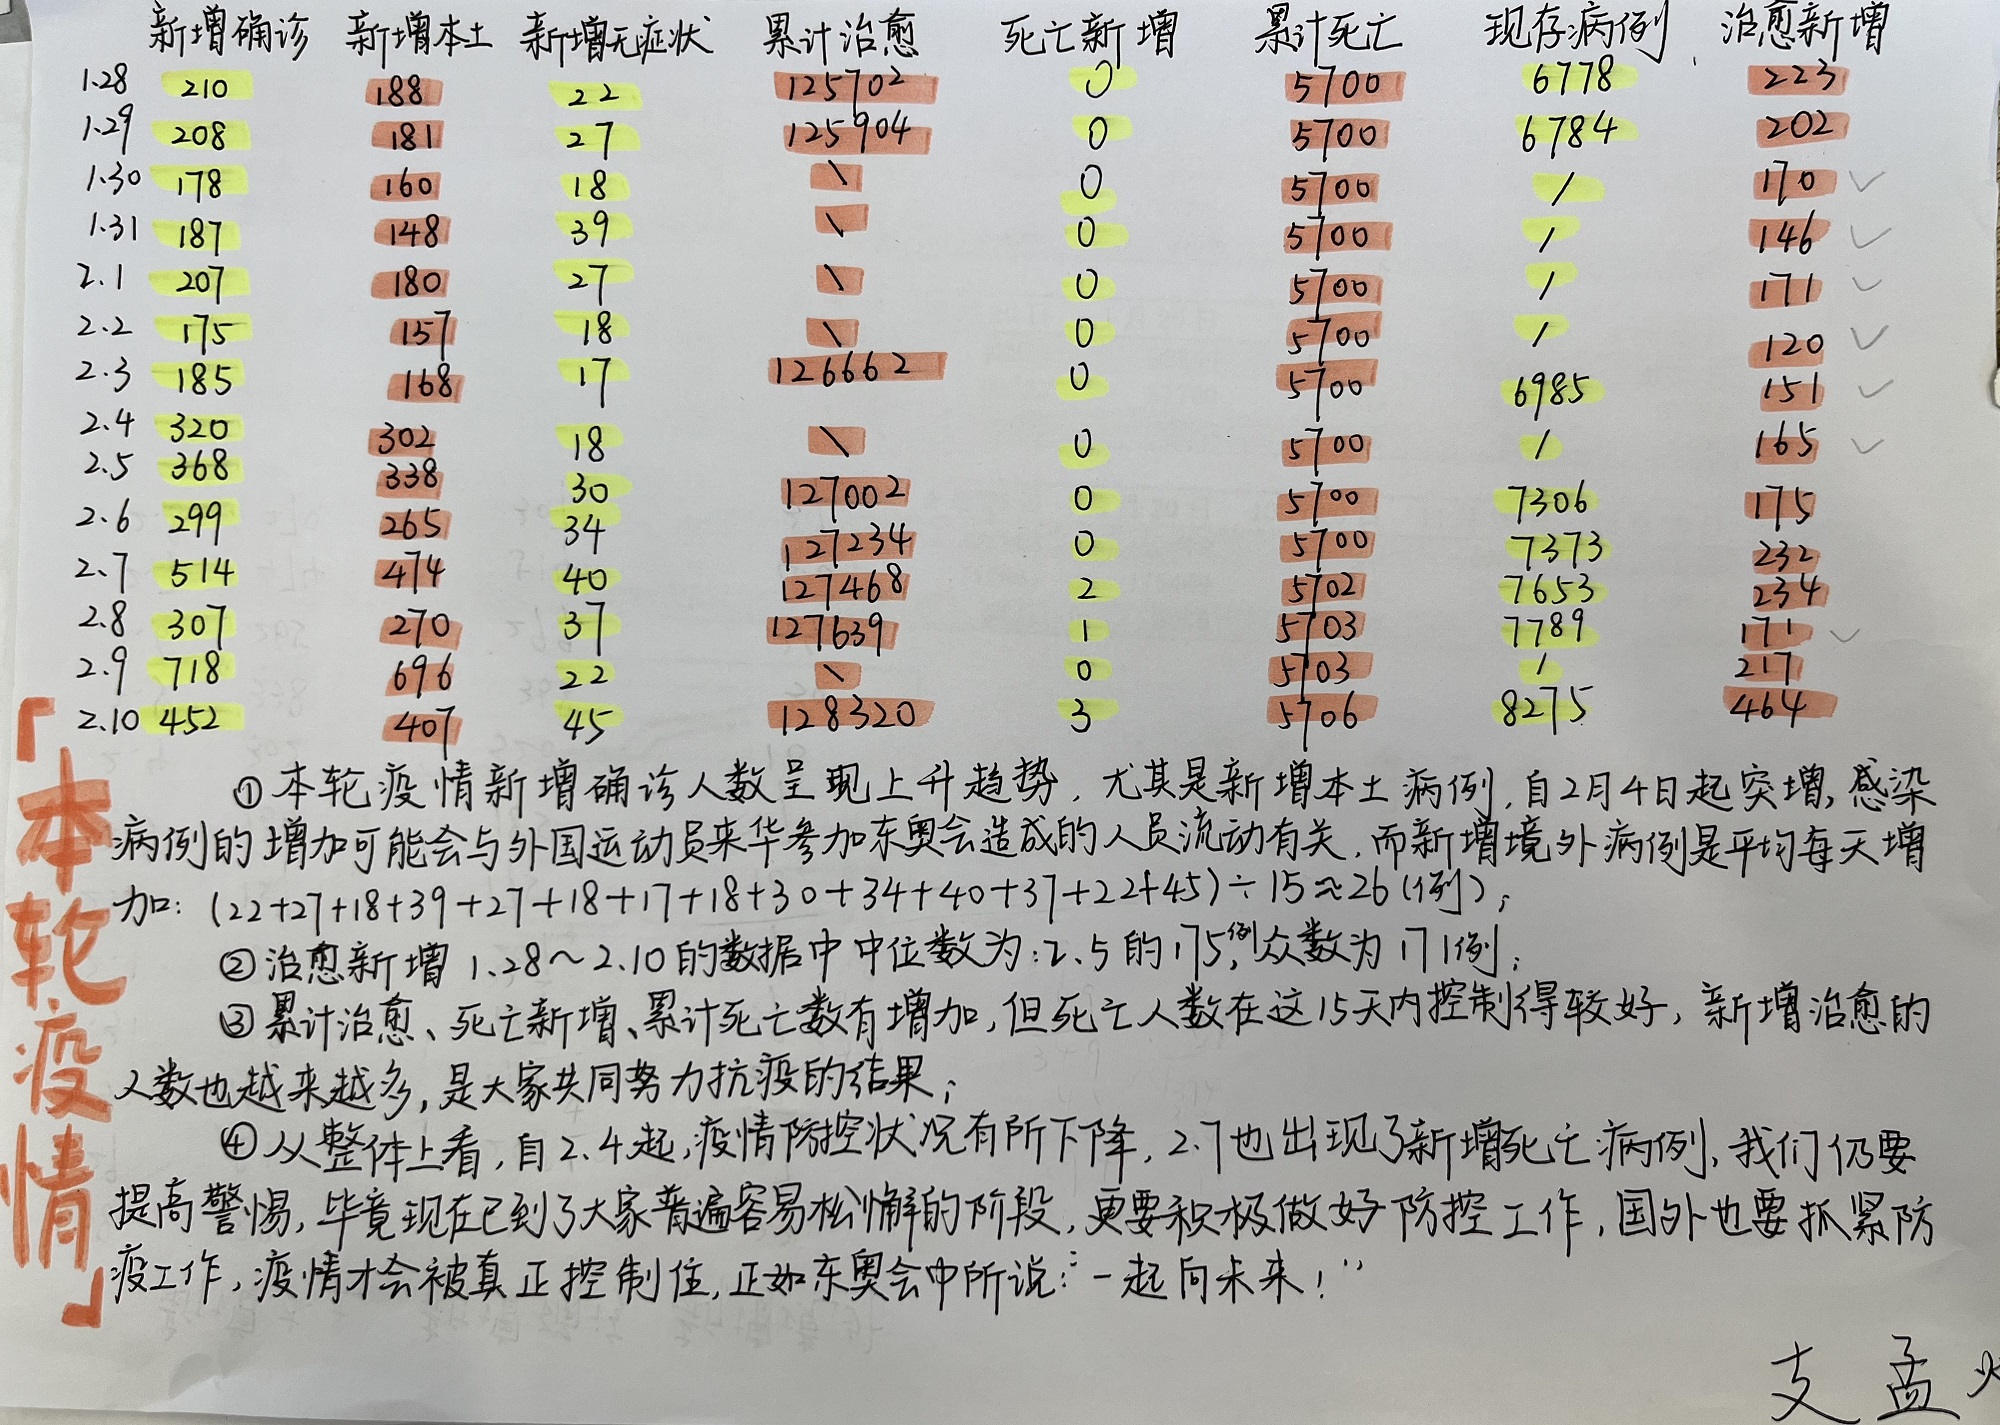 新增确诊 新增本土 新增无症状 累计治愈 死亡新增 累计死亡 现存病例 治愈新增
1.28 210 188 22 125702 0 5700 6778 223
1.29 208 181 27 125904 0 5700 6784 202
1.30 178 160 18 \ 0 5700 / 170 ✓
1.31 187 148 39 \ 0 5700 / 146 ✓
2.1 207 180 27 \ 0 5700 / 171 ✓
2.2 175 157 18 \ 0 5700 / 120 ✓
2.3 185 168 17 126662 0 5700 6985 151 ✓
2.4 320 302 18 \ 0 5700 / 165 ✓
2.5 368 338 30 127002 0 5700 7306 175
2.6 299 265 34 127234 0 5700 7373 232
2.7 514 474 40 127468 2 5702 7653 234
2.8 307 270 37 127639 1 5703 7789 171 ✓
2.9 718 696 22 \ 0 5703 / 217
2.10 452 407 45 128320 3 5706 8275 464
「本轮疫情」
①本轮疫情新增确诊人数呈现上升趋势，尤其是新增本土病例，自2月4日起突增，感染
病例的增加可能会与外国运动员来华参加东奥会造成的人员流动有关，而新增境外病例是平均每天增
加：(22+27+18+39+27+18+17+18+30+34+40+37+22+45)÷15≈26(例)；
②治愈新增1.28～2.10的数据中中位数为：2.5的175例，众数为171例；
③累计治愈、死亡新增、累计死亡数有增加，但死亡人数在这15天内控制得较好，新增治愈的
人数也越来越多，是大家共同努力抗疫的结果；
④从整体上看，自2.4起，疫情防控状况有所下降，2.7也出现了新增死亡病例，我们仍要
提高警惕，毕竟现在已到了大家普遍容易松懈的阶段，更要积极做好防控工作，国外也要抓紧防
疫工作，疫情才会被真正控制住，正如东奥会中所说：“一起向未来！”
支孟